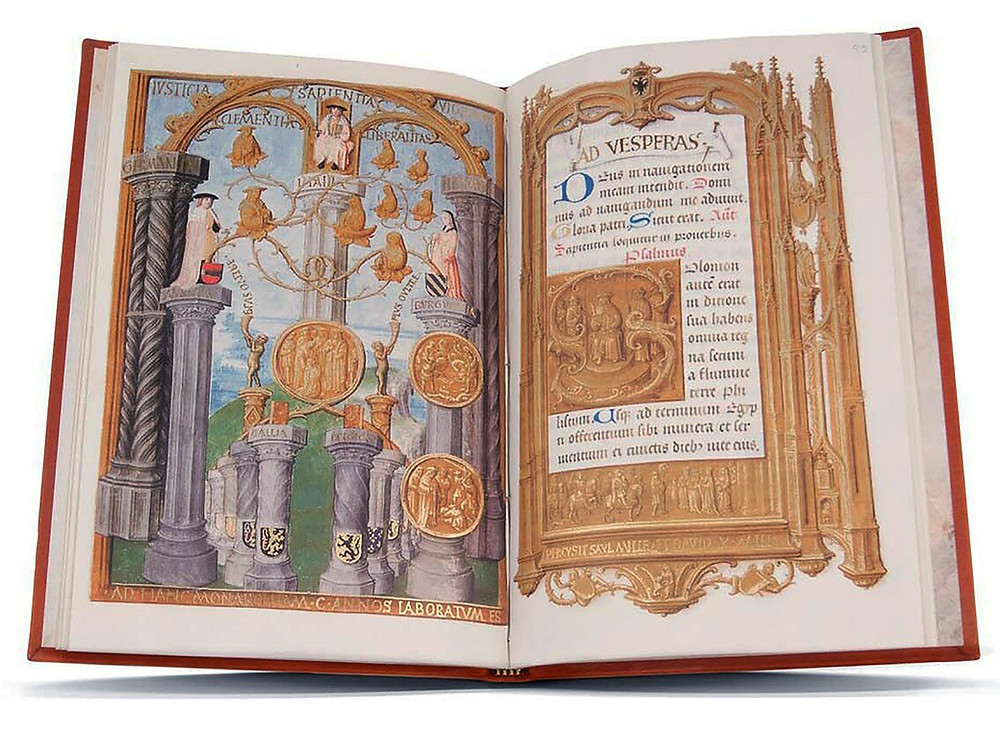 IVSTICIA
SAPIENTIA
VIG
CLEMENTIA
LIBERALITAS
GERMAN
ITALIA
BVRGV
PLVS OVLTRE
GALLIA
AD HANC MONARCHIAM C ANNOS LABORATVM ES
AD VESPERAS
Deus in navigationem
meam intendit. Domi
nus ad navigandum me adiuvit.
Gloria patri. Sicut erat. Ant
Sapientia loquitur in proverbiis.
Psalmus
Solomon
autem erat
in ditione
sua habens
omnia reg
na secum
a flumine
terre Phi
listiim. Usq ad terminum Egyp
ti offerentium sibi munera et ser
vientium ei cunctis dieb vite eius.
PERCVSIT SAVL MILLE ET DAVID X MILLE